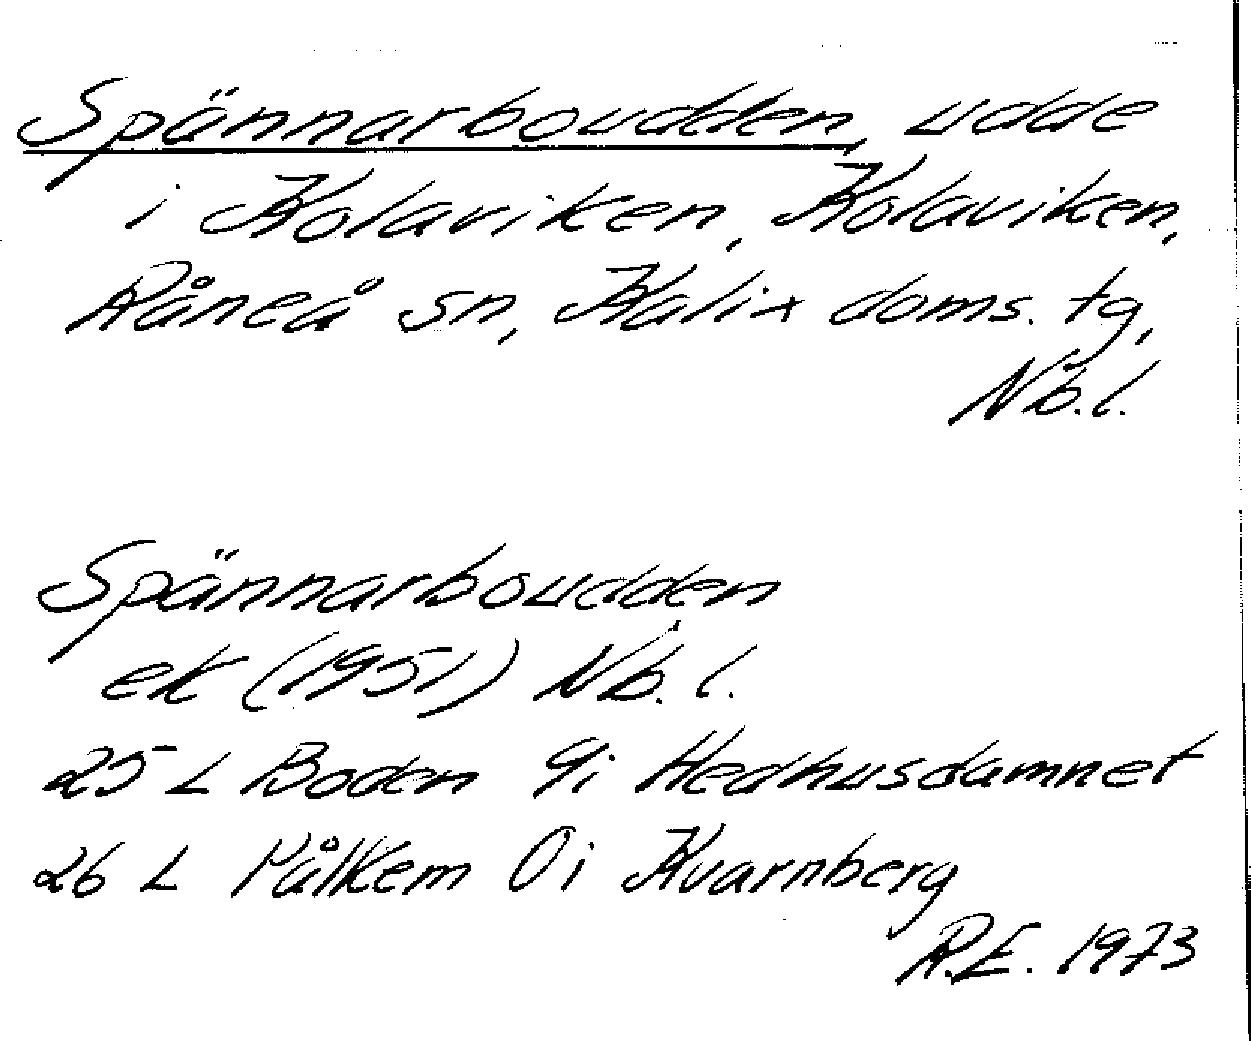 Spännarboudden, udde
i Kolaviken, Kolaviken,
Råneå sn, Kalix doms. tg,
Nb.l.
Spännarboudden
ek (1951) Nb.l.
25 L Boden 9i Hedhusdamnet
26 L Pålkem 0i Kvarnberg
R.E. 1973